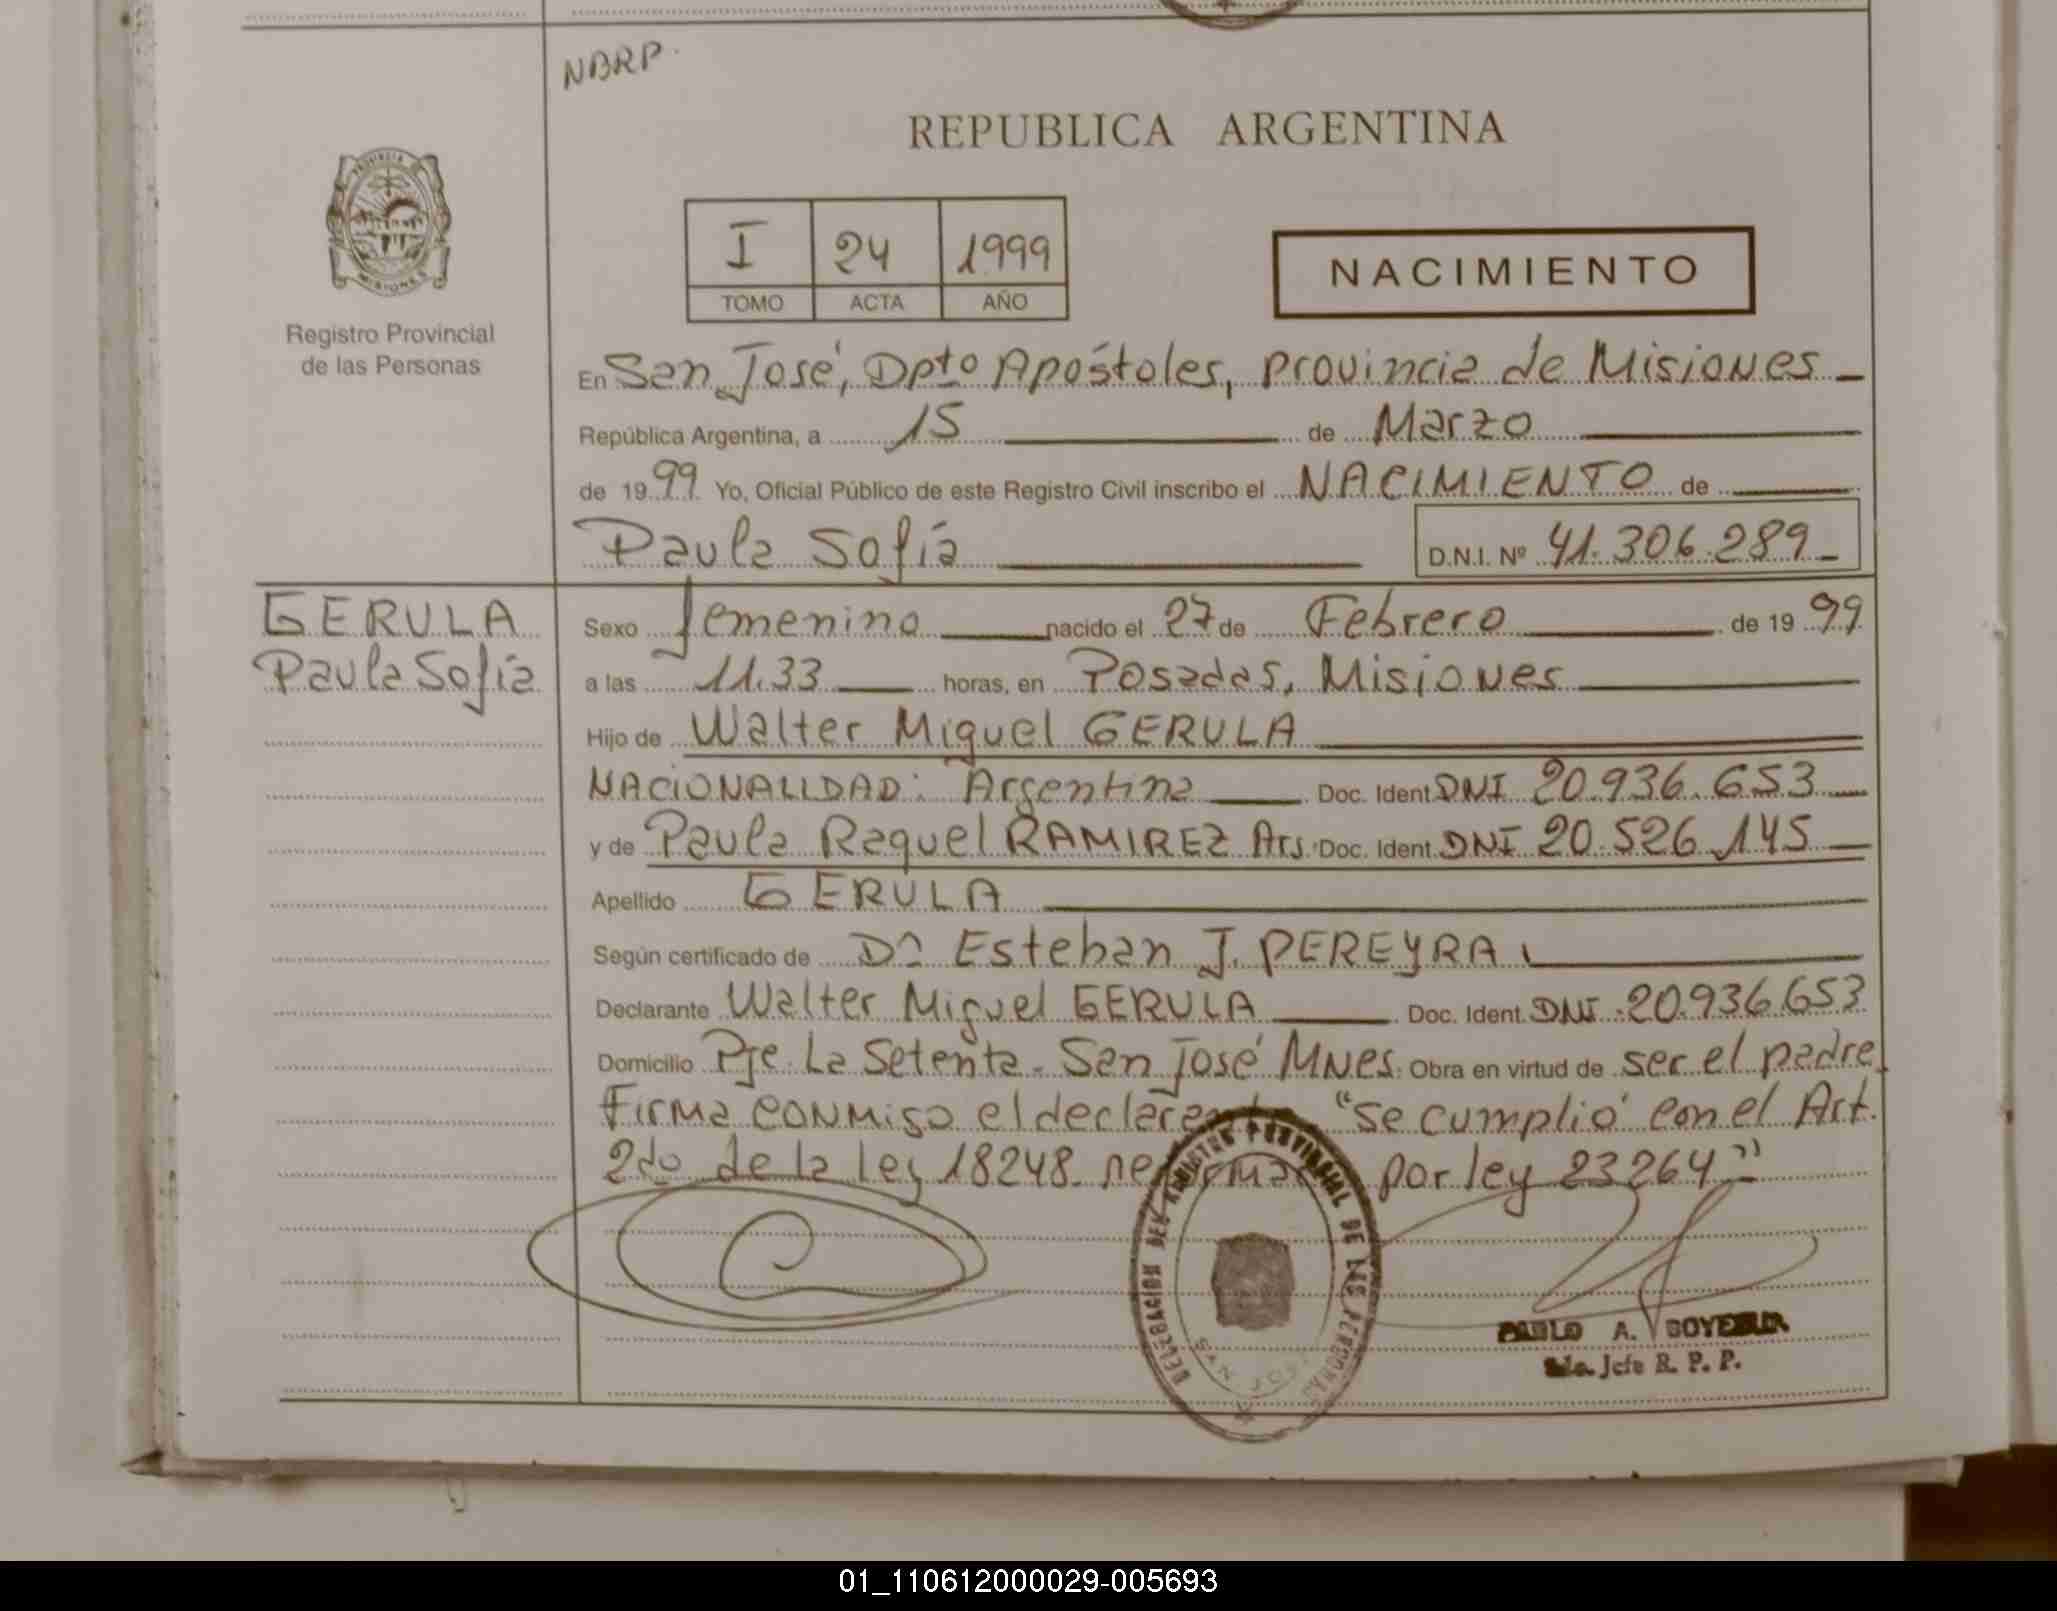 NBRP.
REPUBLICA ARGENTINA
PROVINCIA
MISIONES
Registro Provincial
de las Personas
I 24 1999
TOMO ACTA AÑO
NACIMIENTO
En San José, Dpto Apóstoles, provincia de Misiones
República Argentina, a 15 de Marzo
de 1999 Yo, Oficial Público de este Registro Civil inscribo el NACIMIENTO de
Paula Sofía D.N.I. Nº 41.306.289
GERULA
Paula Sofía
Sexo femenino nacido el 27 de Febrero de 1999
a las 11.33 horas, en Posadas, Misiones
Hijo de Walter Miguel GERULA
NACIONALIDAD: Argentina Doc. Ident DNI 20.936.653
y de Paula Raquel RAMIREZ Arg. Doc. Ident DNI 20.526.145
Apellido GERULA
Según certificado de Dr Esteban J. PEREYRA
Declarante Walter Miguel GERULA Doc. Ident. DNI 20.936.653
Domicilio Pje. La Setenta - San José Mnes. Obra en virtud de ser el padre
Firma conmigo el declarante "se cumplió con el Art.
2do de la Ley 18248 por ley 23264"
DELEGACION DEL REGISTRO PROVINCIAL DE LAS PERSONAS
SAN JOSE
PABLO A.
Jefe R. P. P.
01_110612000029-005693